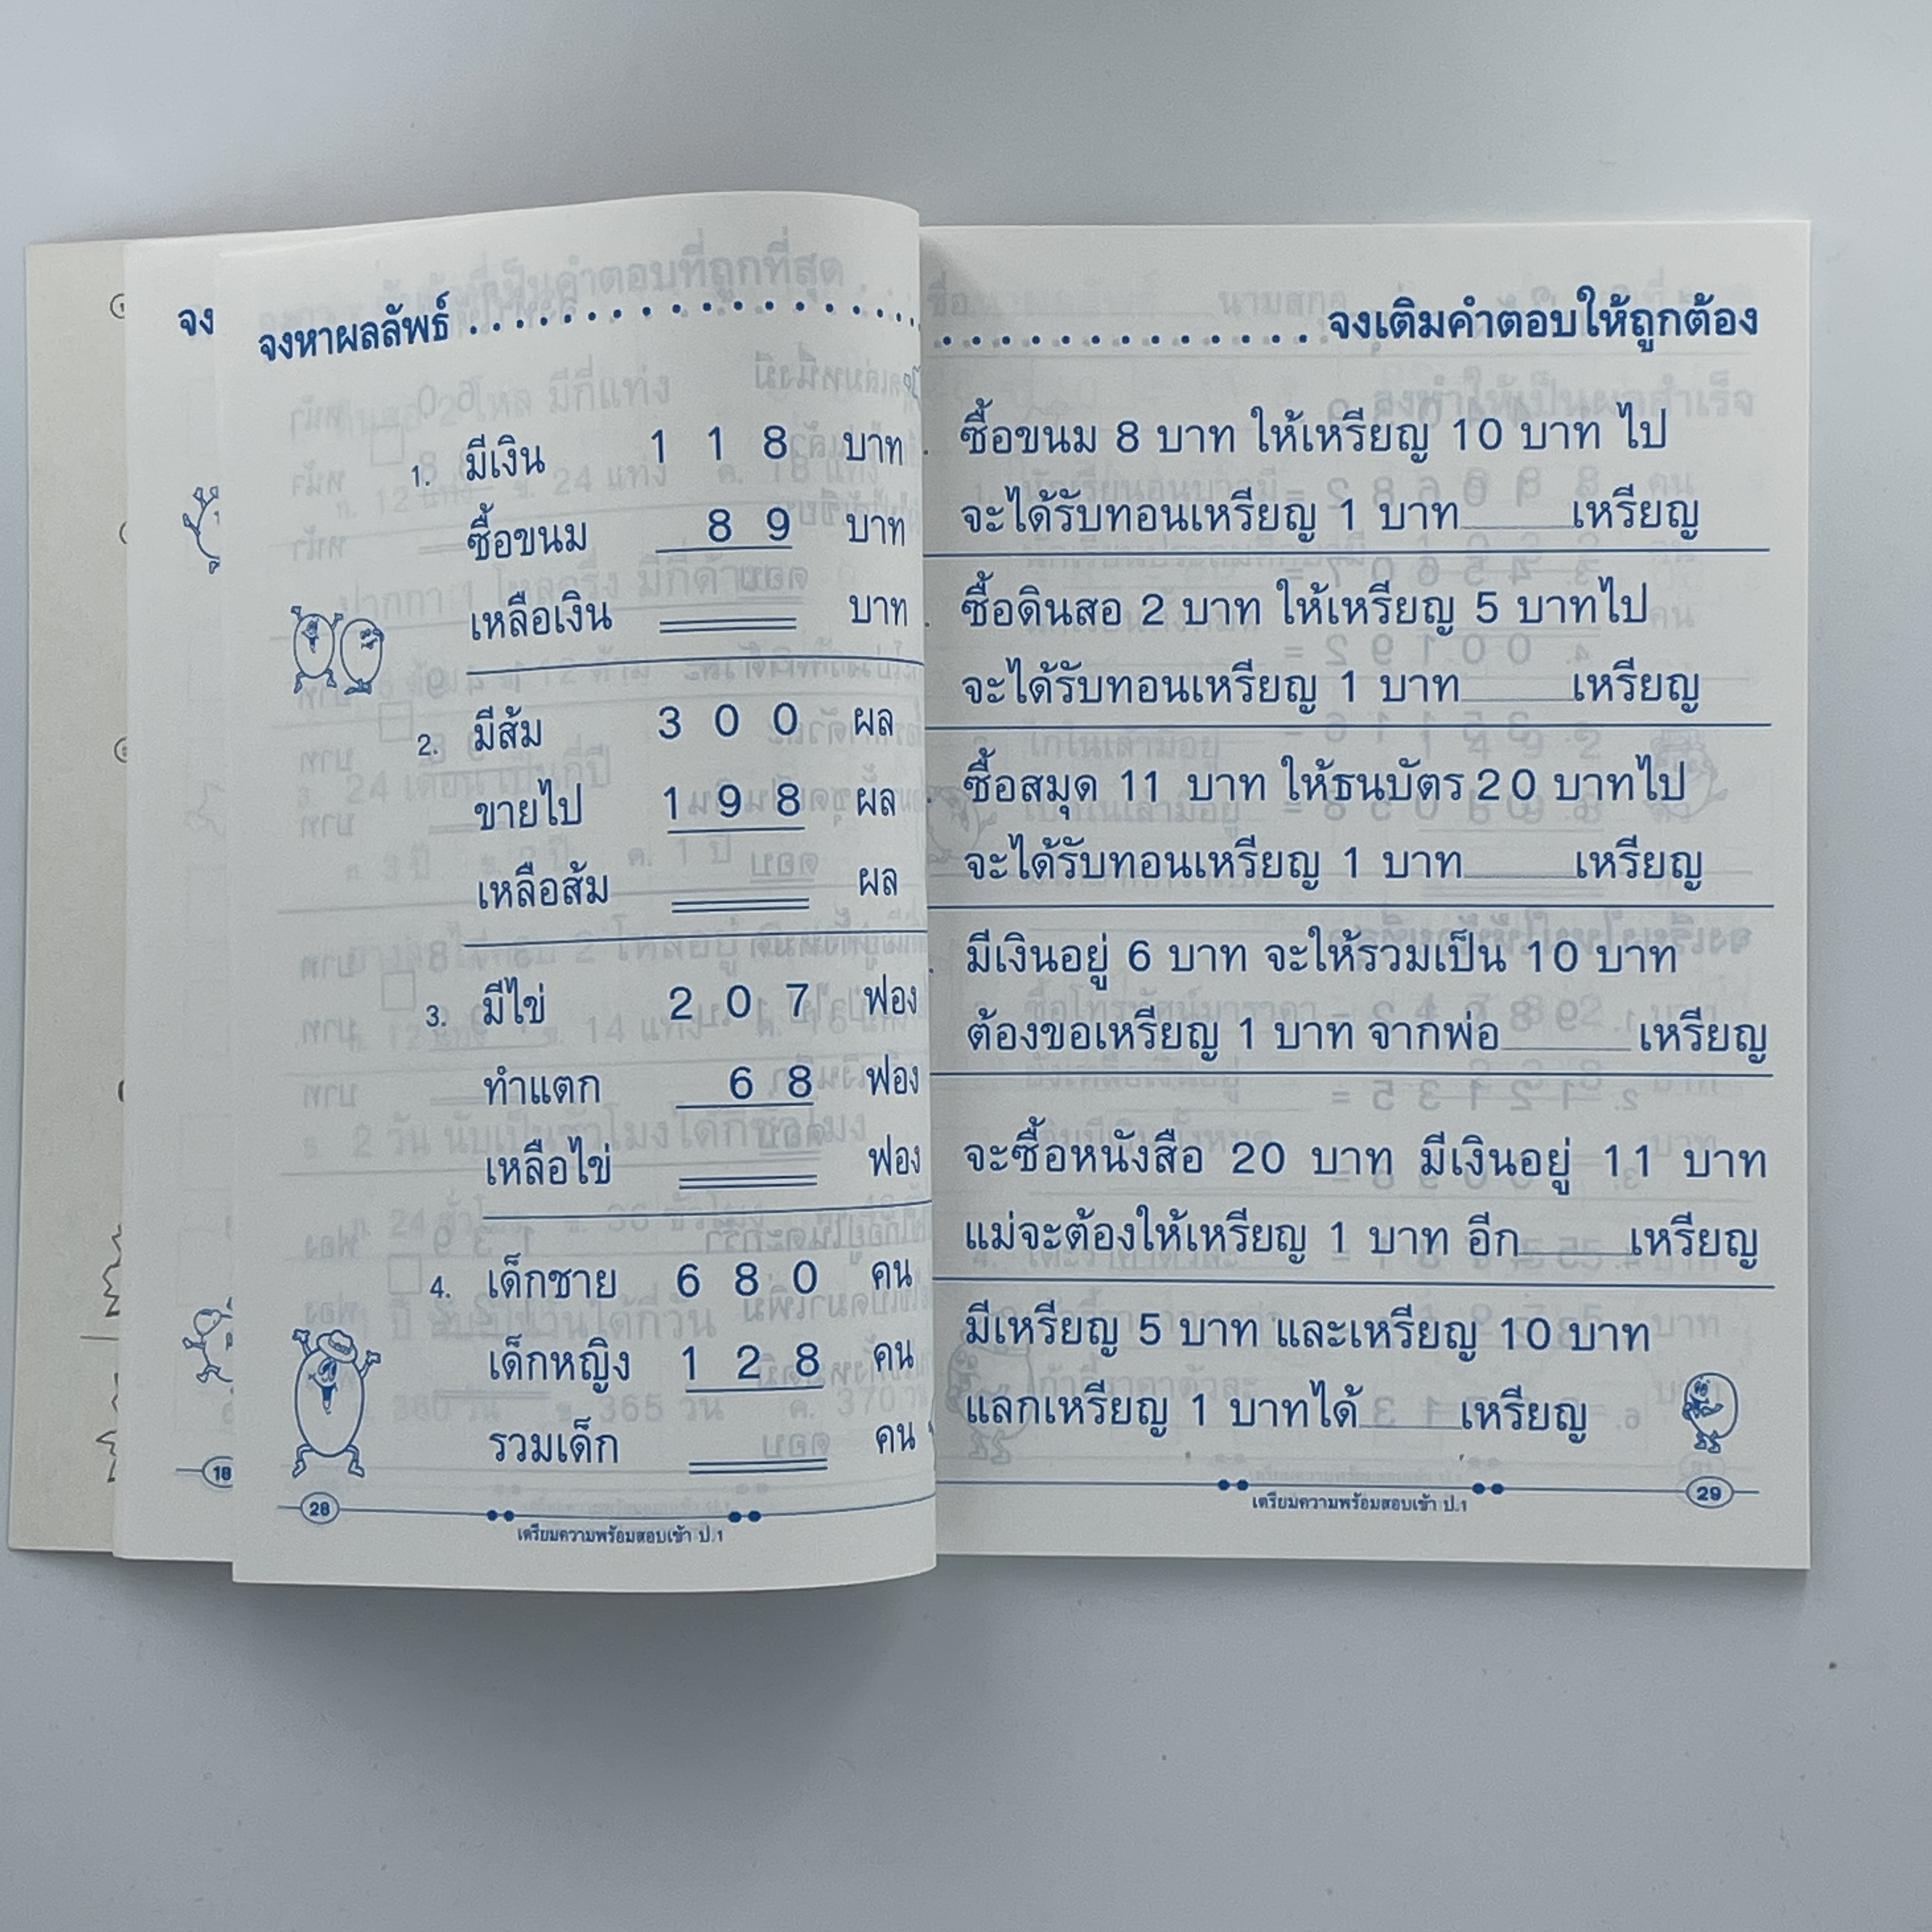 จง
18
จงหาผลลัพธ์
1. มีเงิน 1 1 8 บาท
ซื้อขนม 8 9 บาท
เหลือเงิน บาท
2. มีส้ม 3 0 0 ผล
ขายไป 1 9 8 ผล
เหลือส้ม ผล
3. มีไข่ 2 0 7 ฟอง
ทำแตก 6 8 ฟอง
เหลือไข่ ฟอง
4. เด็กชาย 6 8 0 คน
เด็กหญิง 1 2 8 คน
รวมเด็ก คน
28
เตรียมความพร้อมสอบเข้า ป.1
จงเติมคำตอบให้ถูกต้อง
ซื้อขนม 8 บาท ให้เหรียญ 10 บาท ไป
จะได้รับทอนเหรียญ 1 บาท เหรียญ
ซื้อดินสอ 2 บาท ให้เหรียญ 5 บาทไป
จะได้รับทอนเหรียญ 1 บาท เหรียญ
ซื้อสมุด 11 บาท ให้ธนบัตร 20 บาทไป
จะได้รับทอนเหรียญ 1 บาท เหรียญ
มีเงินอยู่ 6 บาท จะให้รวมเป็น 10 บาท
ต้องขอเหรียญ 1 บาท จากพ่อ เหรียญ
จะซื้อหนังสือ 20 บาท มีเงินอยู่ 11 บาท
แม่จะต้องให้เหรียญ 1 บาท อีก เหรียญ
มีเหรียญ 5 บาท และเหรียญ 10 บาท
แลกเหรียญ 1 บาทได้ เหรียญ
เตรียมความพร้อมสอบเข้า ป.1
29